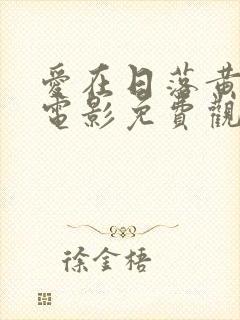 愛在日落黃
電影免費觀
徐金梧